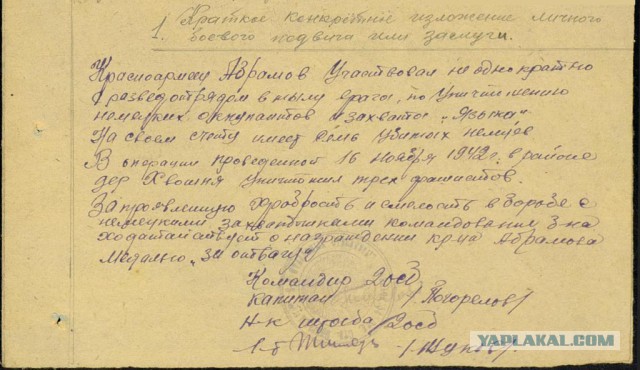 1. Краткое конкретное изложение личного
боевого подвига или заслуги.
Красноармеец Абрамов Участвовал неоднократно
с разведотрядом в тылу врага, по Уничтожению
немецких оккупантов и захвата „Языка"
На своем счету имеет семь убитых немцев
В операции проведенной 16 ноября 1942г. в районе
дер Хвошня уничтожил трех фашистов.
За проявленную храбрость и смелость в борьбе с
немецкими захватчиками командование
ходатайствует о награждении кр-ца Абрамова
Медалью „За отвагу"
Командир 2осб
капитан /Погорелов/
Н-к штаба 2осб
/Жуков/.
YAPLAKAL.COM